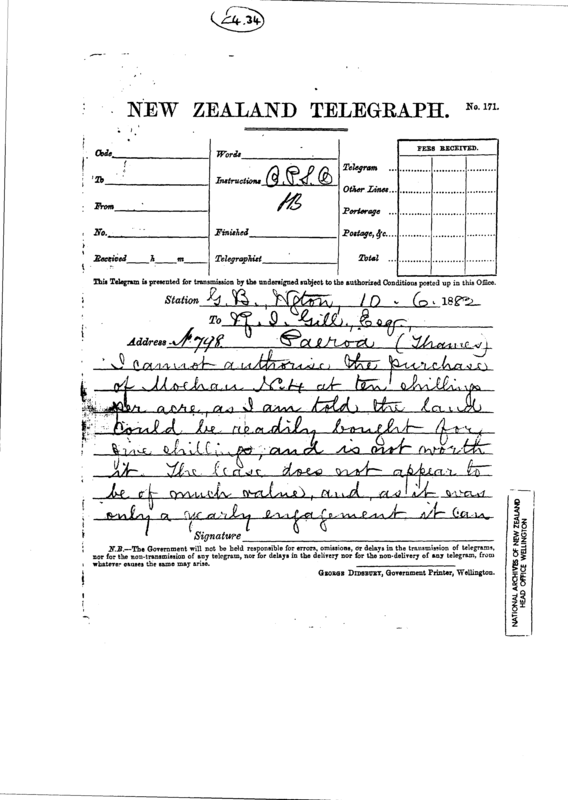 E4.34
NEW ZEALAND TELEGRAPH. No. 171.
Code
To
From
No.
Received h m
Words
Instructions O.P.S.O
HB
Finished
Telegraphist
FEES RECEIVED.
Telegram
Other Lines
Porterage
Postage, &c.
Total
This Telegram is presented for transmission by the undersigned subject to the authorised Conditions posted up in this Office.
Station G. B., Wgton, 10 . 6 . 1882
To R. J. Gill, Esq,
Address No 798. Paeroa (Thames)
I cannot authorise the purchase
of No 4 at ten shillings
per acre, as I am told the land
could be readily bought for
five shillings, and is not worth
it. The lease does not appear to
be of much value, and, as it was
only a yearly engagement it can
Signature
N.B.—The Government will not be held responsible for errors, omissions, or delays in the transmission of telegrams,
nor for the non-transmission of any telegram, nor for delays in the delivery nor for the non-delivery of any telegram, from
whatever causes the same may arise.
GEORGE DIDSBURY, Government Printer, Wellington.
NATIONAL ARCHIVES OF NEW ZEALAND
HEAD OFFICE WELLINGTON